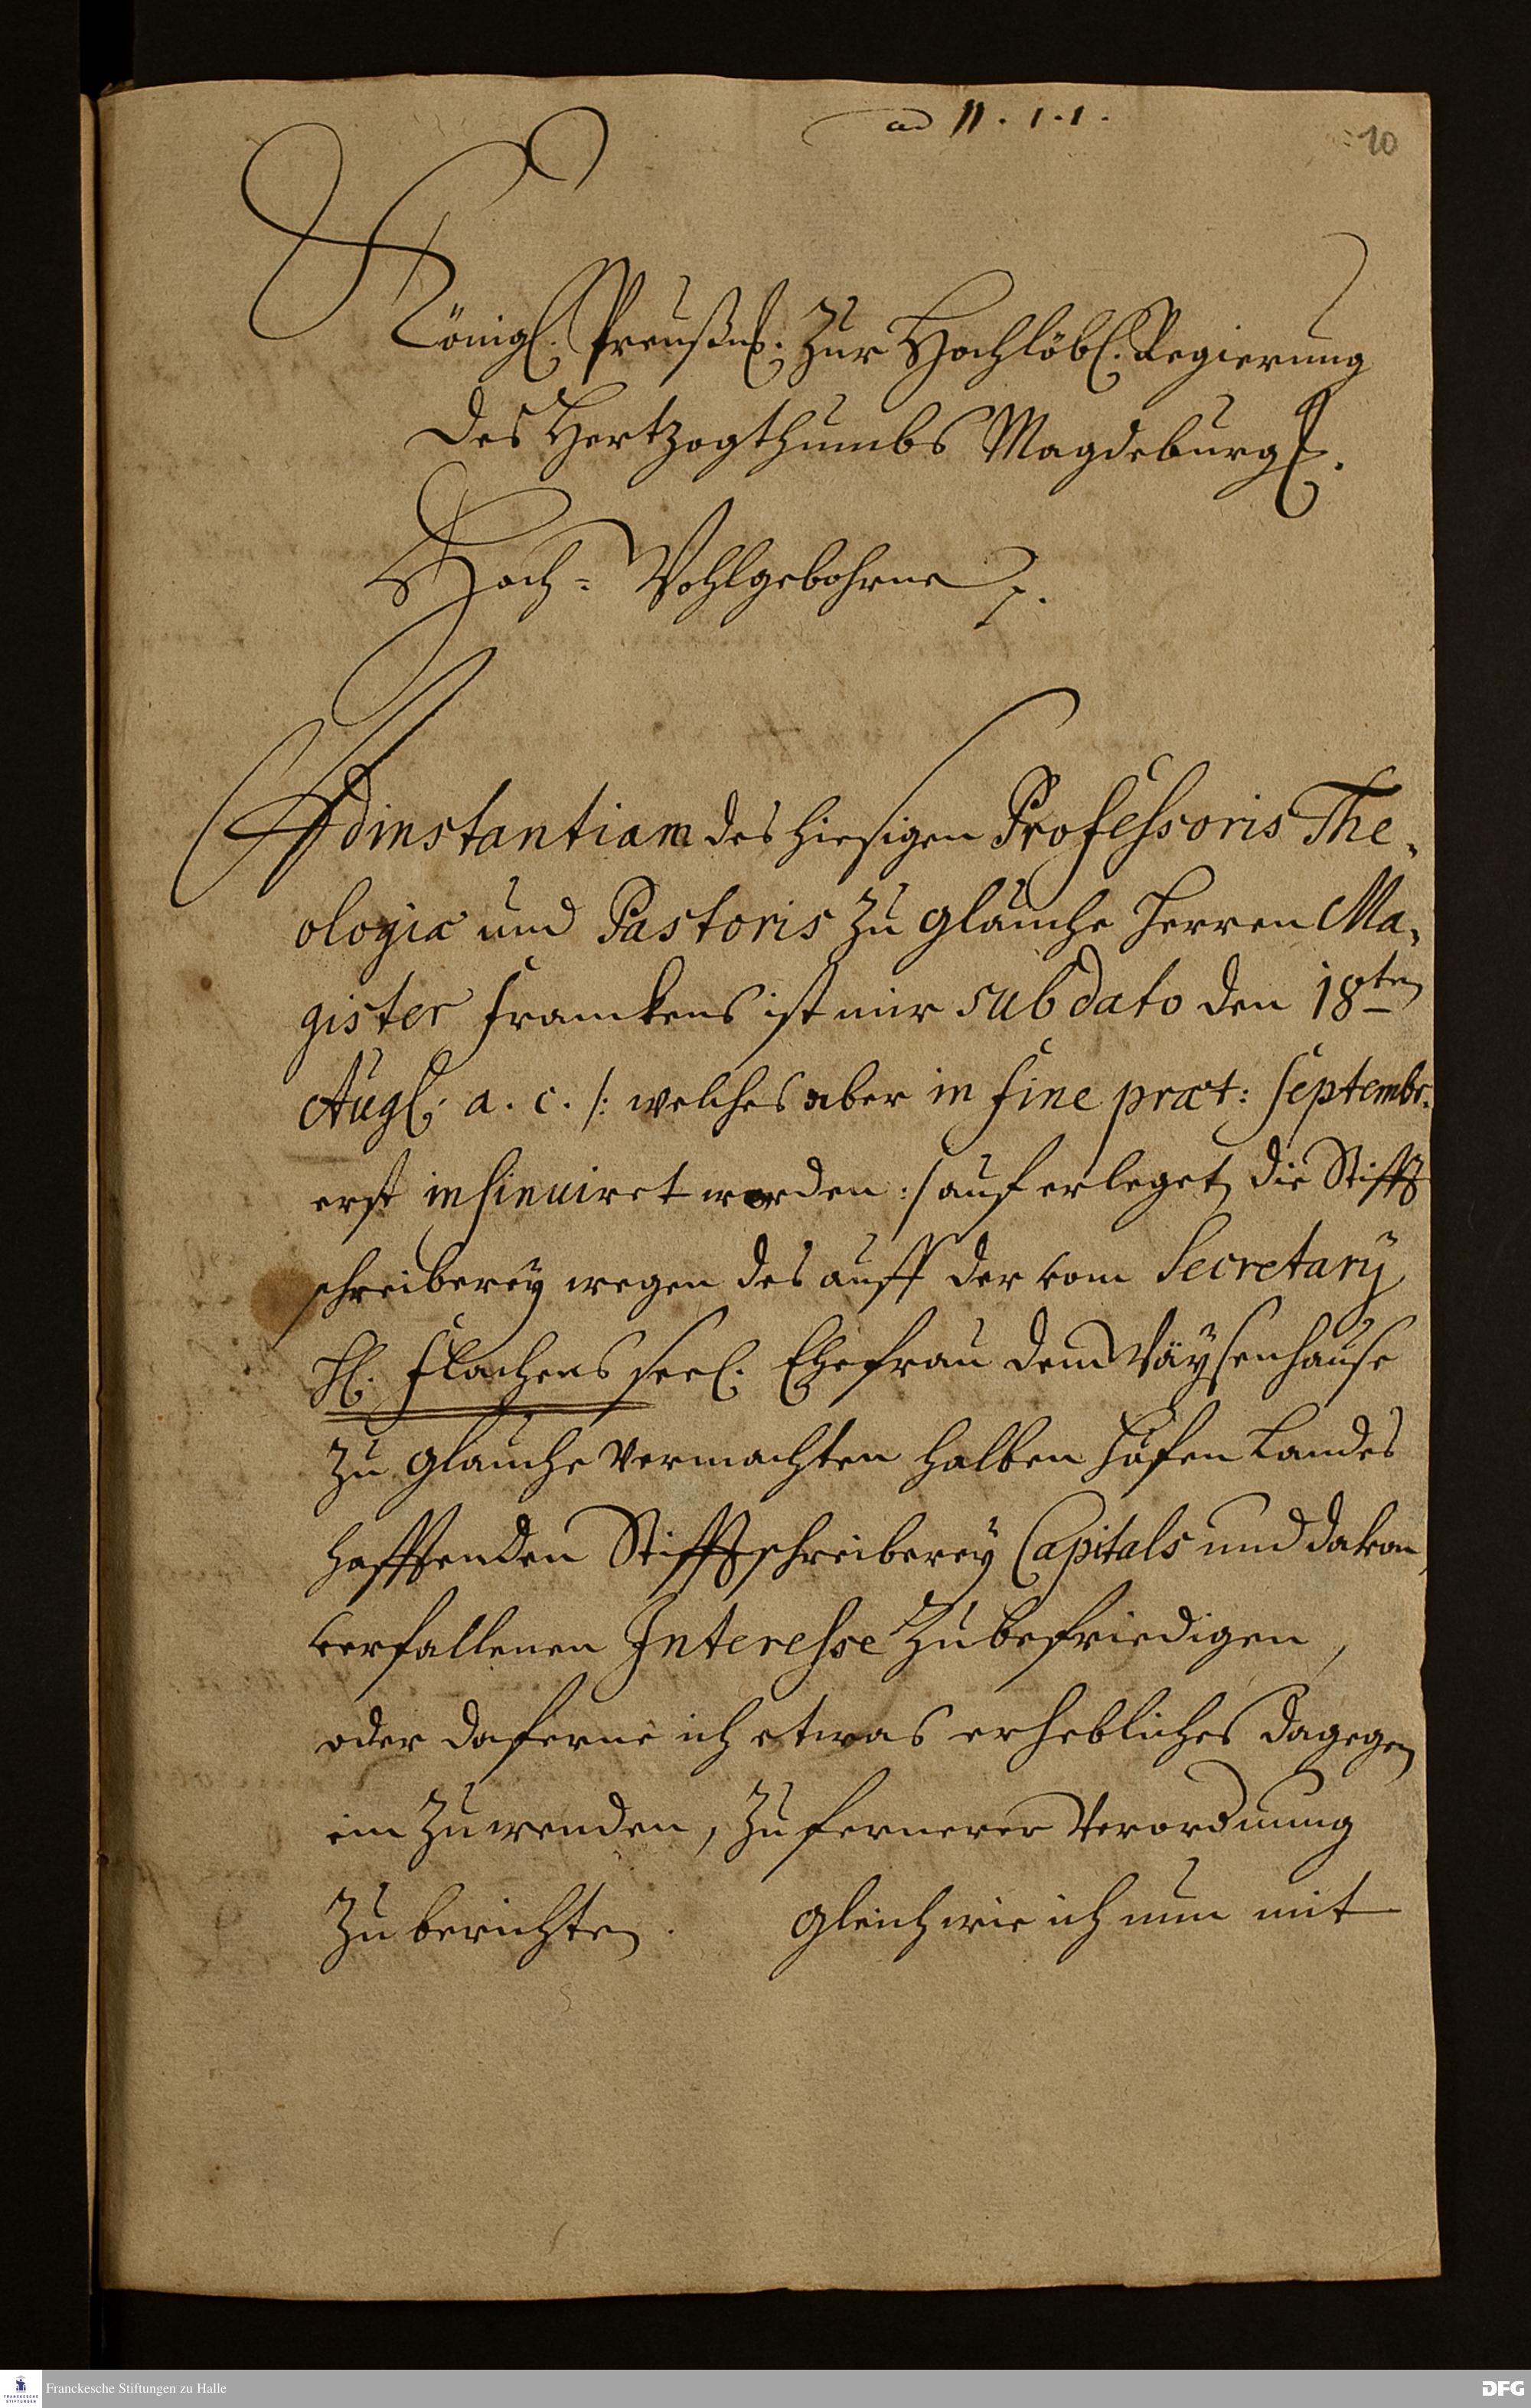 ad II. 1.1.
10
Königl. Preußisch. Zur Hochlöbl. Regierung
des Hertzogthumbs Magdeburg
Hoch- Wohlgebohrne p.
Ad instantiam des hiesigen Professoris The-
ologiæ und Pastoris zu Glaucha Herren Ma-
gister Franckens ist mir sub dato den 18ten
Aug. a. c. /: welches aber in fine præt: Septembr.
erst insinuiret worden :/ auferleget, die Stiffts
schreiberey wegen des auff der vom Secretarÿ
H. Flachens seel. Ehefrau dem Wäysenhause
zu Glaucha vermachten halben Hufen Landes
hafftenden Stifftsschreiberey Capitals und davon
verfallenen Interesse zubefriedigen,
oder daferne ich etwas erhebliches dagegen
einzuwenden, zu fernerer Verordnung
zu berichten. Gleichwie ich nun mit
Franckesche Stiftungen zu Halle
FRANCKESCHE
STIFTUNGEN
DFG